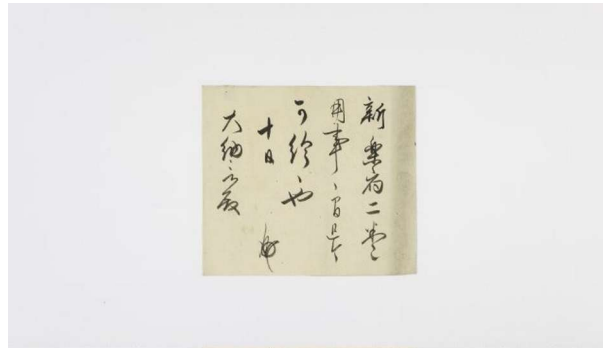 新楽府二巻
用事候間
可給候也
十日
大納言殿